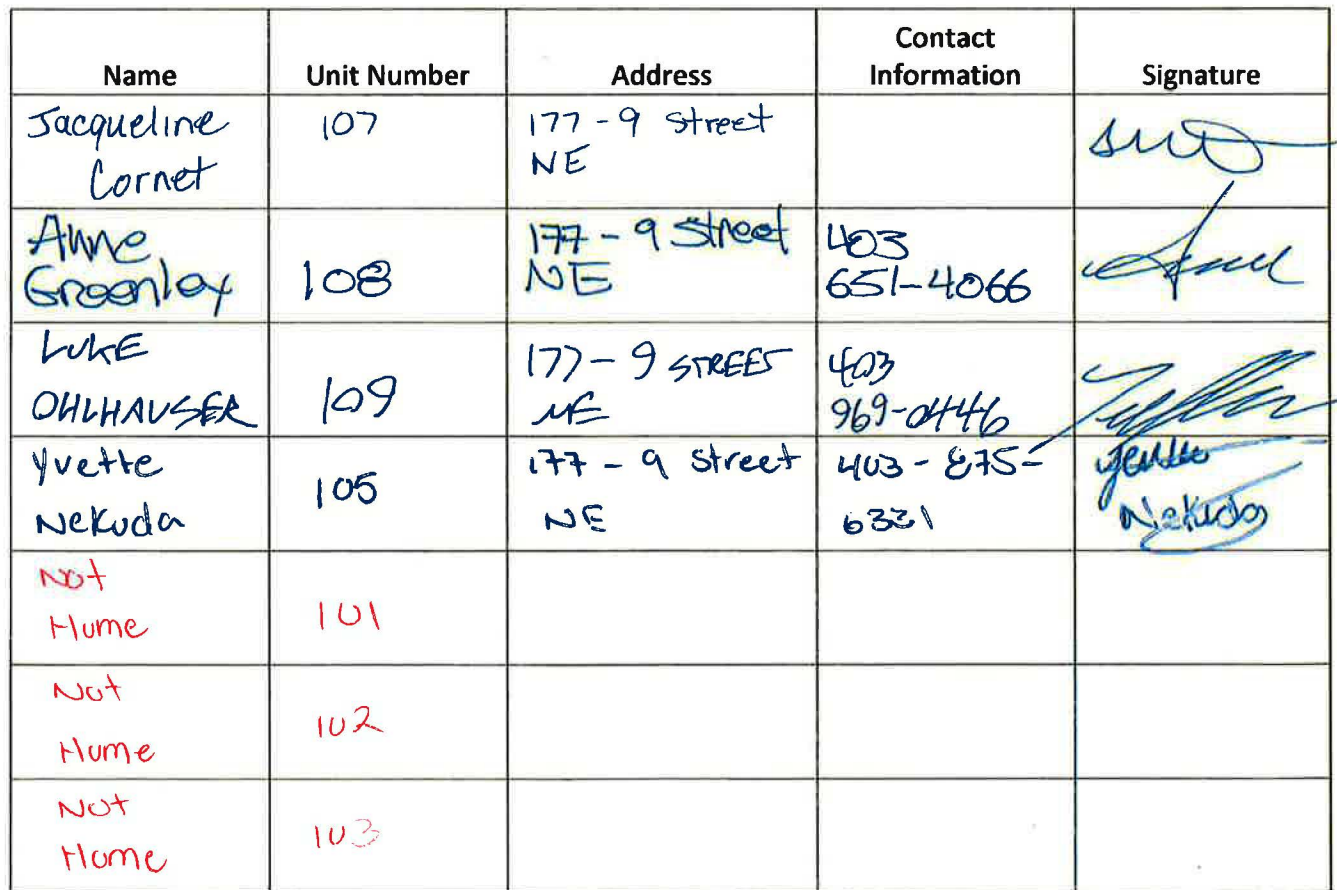 Name Unit Number Address Contact Information Signature
Jacqueline Cornet 107 177 - 9 Street NE
Anne Greenley 108 177 - 9 Street NE 403 651-4066
LUKE OHLHAUSER 109 177 - 9 STREET NE 403 969-0446
Yvette Nekuda 105 177 - 9 Street NE 403 - 875 - 6321 Yvette Nekuda
Not Home 101
Not Home 102
Not Home 103